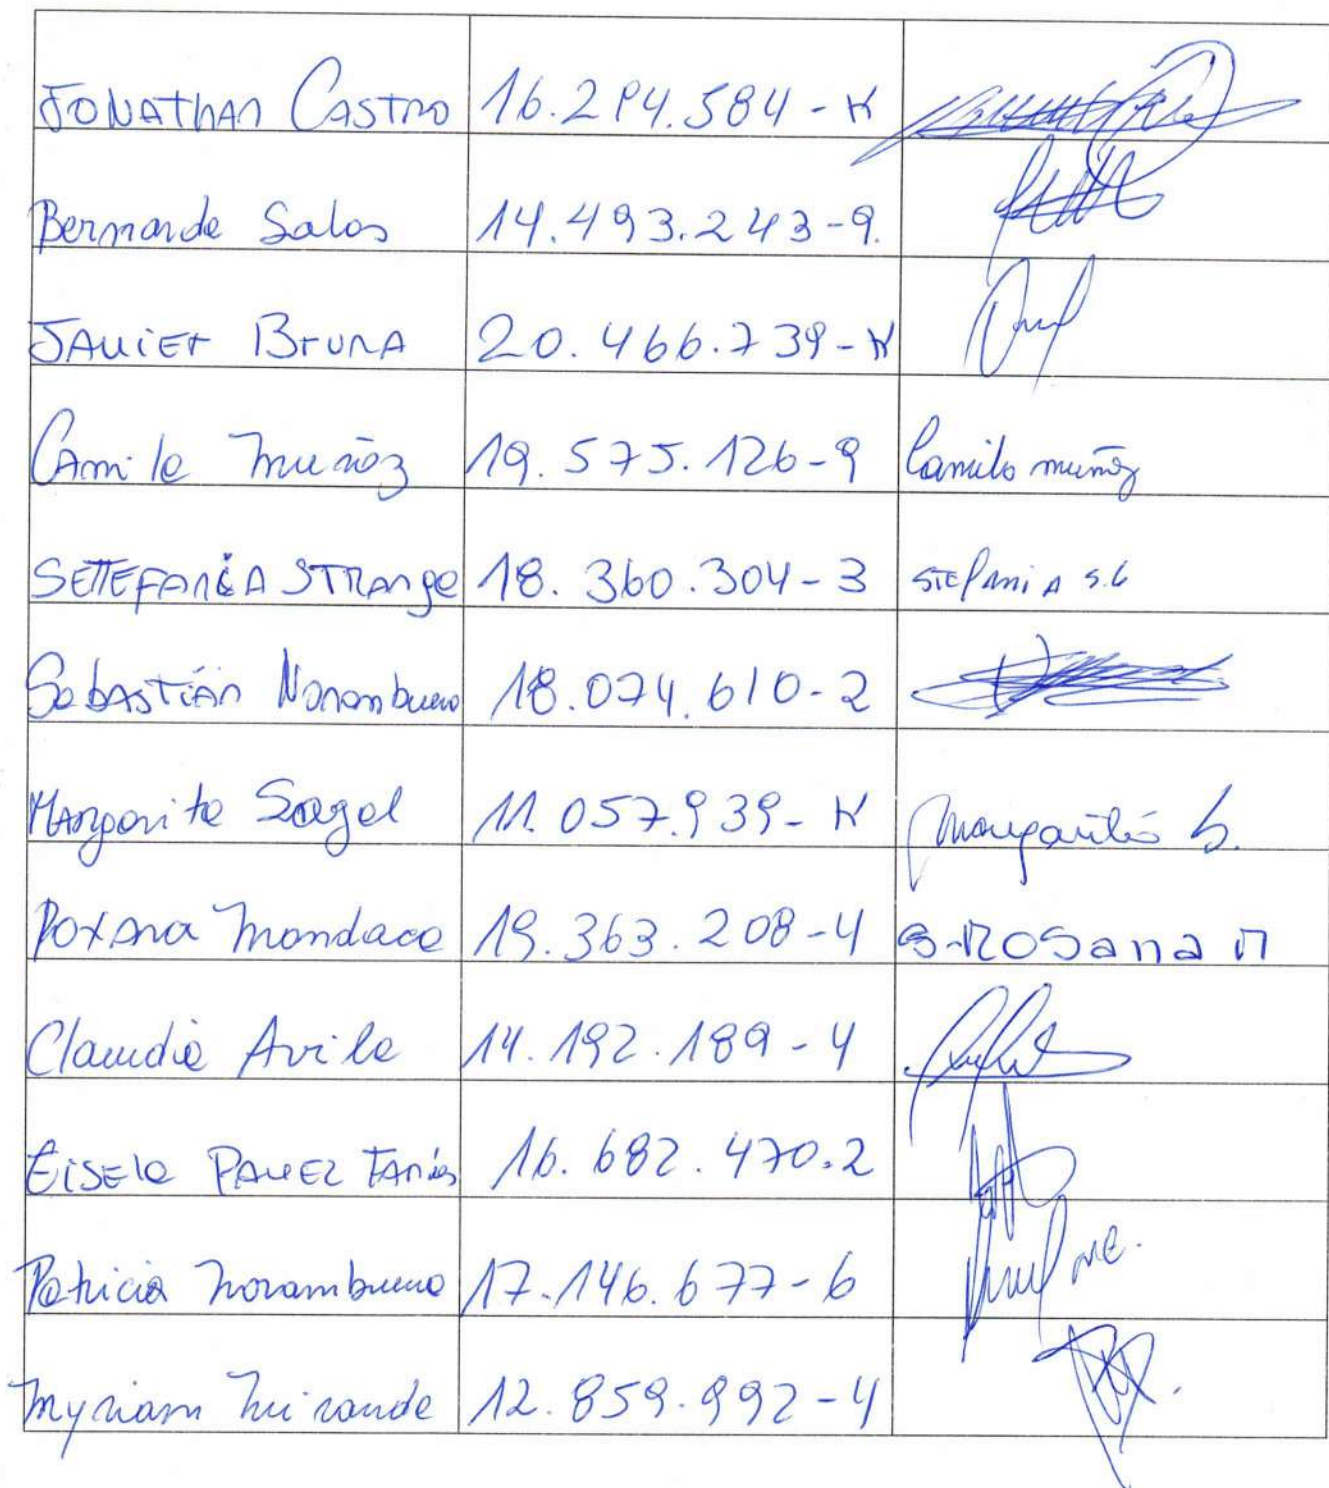 JONATHAN CASTRO 16.294.584-K
Bernarda Salas 14.493.243-9.
JAVIER BRUNA 20.466.739-K
Camila Muñoz 19.575.126-9 Camila muñoz
SETTEFANIA STRANGE 18.360.304-3 STEfANiA S.G
Sebastián Norambuena 18.074.610-2
Margarita Sagal 11.057.939-K Margarita S.
Roxana Mondaca 19.363.208-4 ROSana M
Claudia Avila 14.192.189-4
GISELA PAVEZ FARÍAS 16.682.470.2
Patricia Norambuena 17.146.677-6
Myriam Miranda 12.859.992-4